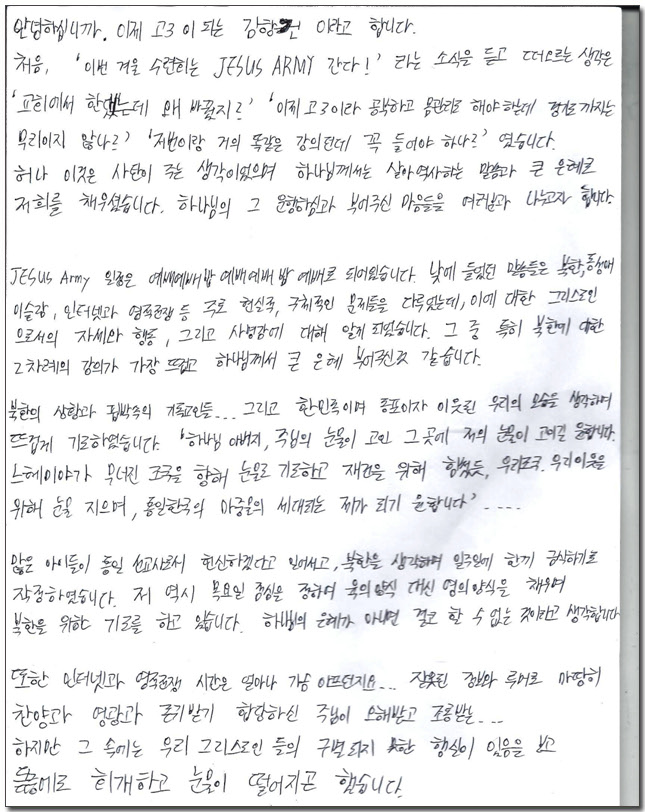 안녕하십니까. 이제 고3이 되는 강향 이라고 합니다.
처음, '이번 겨울 수련회는 JESUS ARMY 간다!' 라는 소식을 듣고 떠오르는 생각은
'교회에서 한다는데 왜 바꿨지?' '이제 고3이라 공부하고 몸관리도 해야 하는데 까지는
무리이지 않나?' '저번이랑 거의 똑같은 강의던데 꼭 들어야 하나?' 였습니다.
허나 이것은 사탄이 주는 생각이었으며 하나님께서는 살아역사하는 말씀과 큰 은혜로
저희를 채우셨습니다. 하나님의 그 운행하심과 부어주신 마음들을 여러분과 나누고자 합니다
JESUS Army 일정은 예배예배밥 예배예배밥 예배로 되어있습니다. 낮에 들었던 말씀들은 북한, 동성애
이슬람, 인터넷과 영적전쟁 등 주로 현실적, 구체적인 문제들을 다루었는데, 이에 대한 그리스도인
으로서의 자세와 행동, 그리고 사명감에 대해 알게 되었습니다. 그 중 특히 북한에 대한
2차례의 강의가 가장 뜨겁고 하나님께서 큰 은혜 부어주신것 같습니다.
북한의 상황과 핍박속의 기독교인들... 그리고 한민족이며 동포이자 이웃된 우리의 모습을 생각하며
뜨겁게 기도하였습니다. '하나님 아버지, 주님의 눈물이 고인 그곳에 저의 눈물이 고이길 원합니다.
느헤미야가 무너진 조국을 향해 눈물로 기도하고 재건을 위해 힘썼듯, 우리조국, 우리이웃을
위해 눈물 지으며, 통일한국의 마중물의 세대되는 제가 되기 원합니다' ....
많은 아이들이 통일 선교사로서 헌신하겠다고 일어서고, 북한을 생각하며 일주일에 한끼 금식하기로
작정하였습니다. 저 역시 목요일 점심을 정하여 육의양식 대신 영의양식을 채우며
북한을 위한 기도를 하고 있습니다. 하나님의 은혜가 아니면 결코 할 수 없는 것이라고 생각합니다
또한 인터넷과 영적전쟁 시간은 얼마나 가슴 아프던지요... 잘못된 정보와 루머로 마땅히
찬양과 영광과 존귀받기 합당하신 주님이 오해받고 조롱받는....
하지만 그 속에는 우리 그리스도인 들의 구별되지 못한 행실이 있음을 보고
회개하고 눈물이 떨어지곤 했습니다.